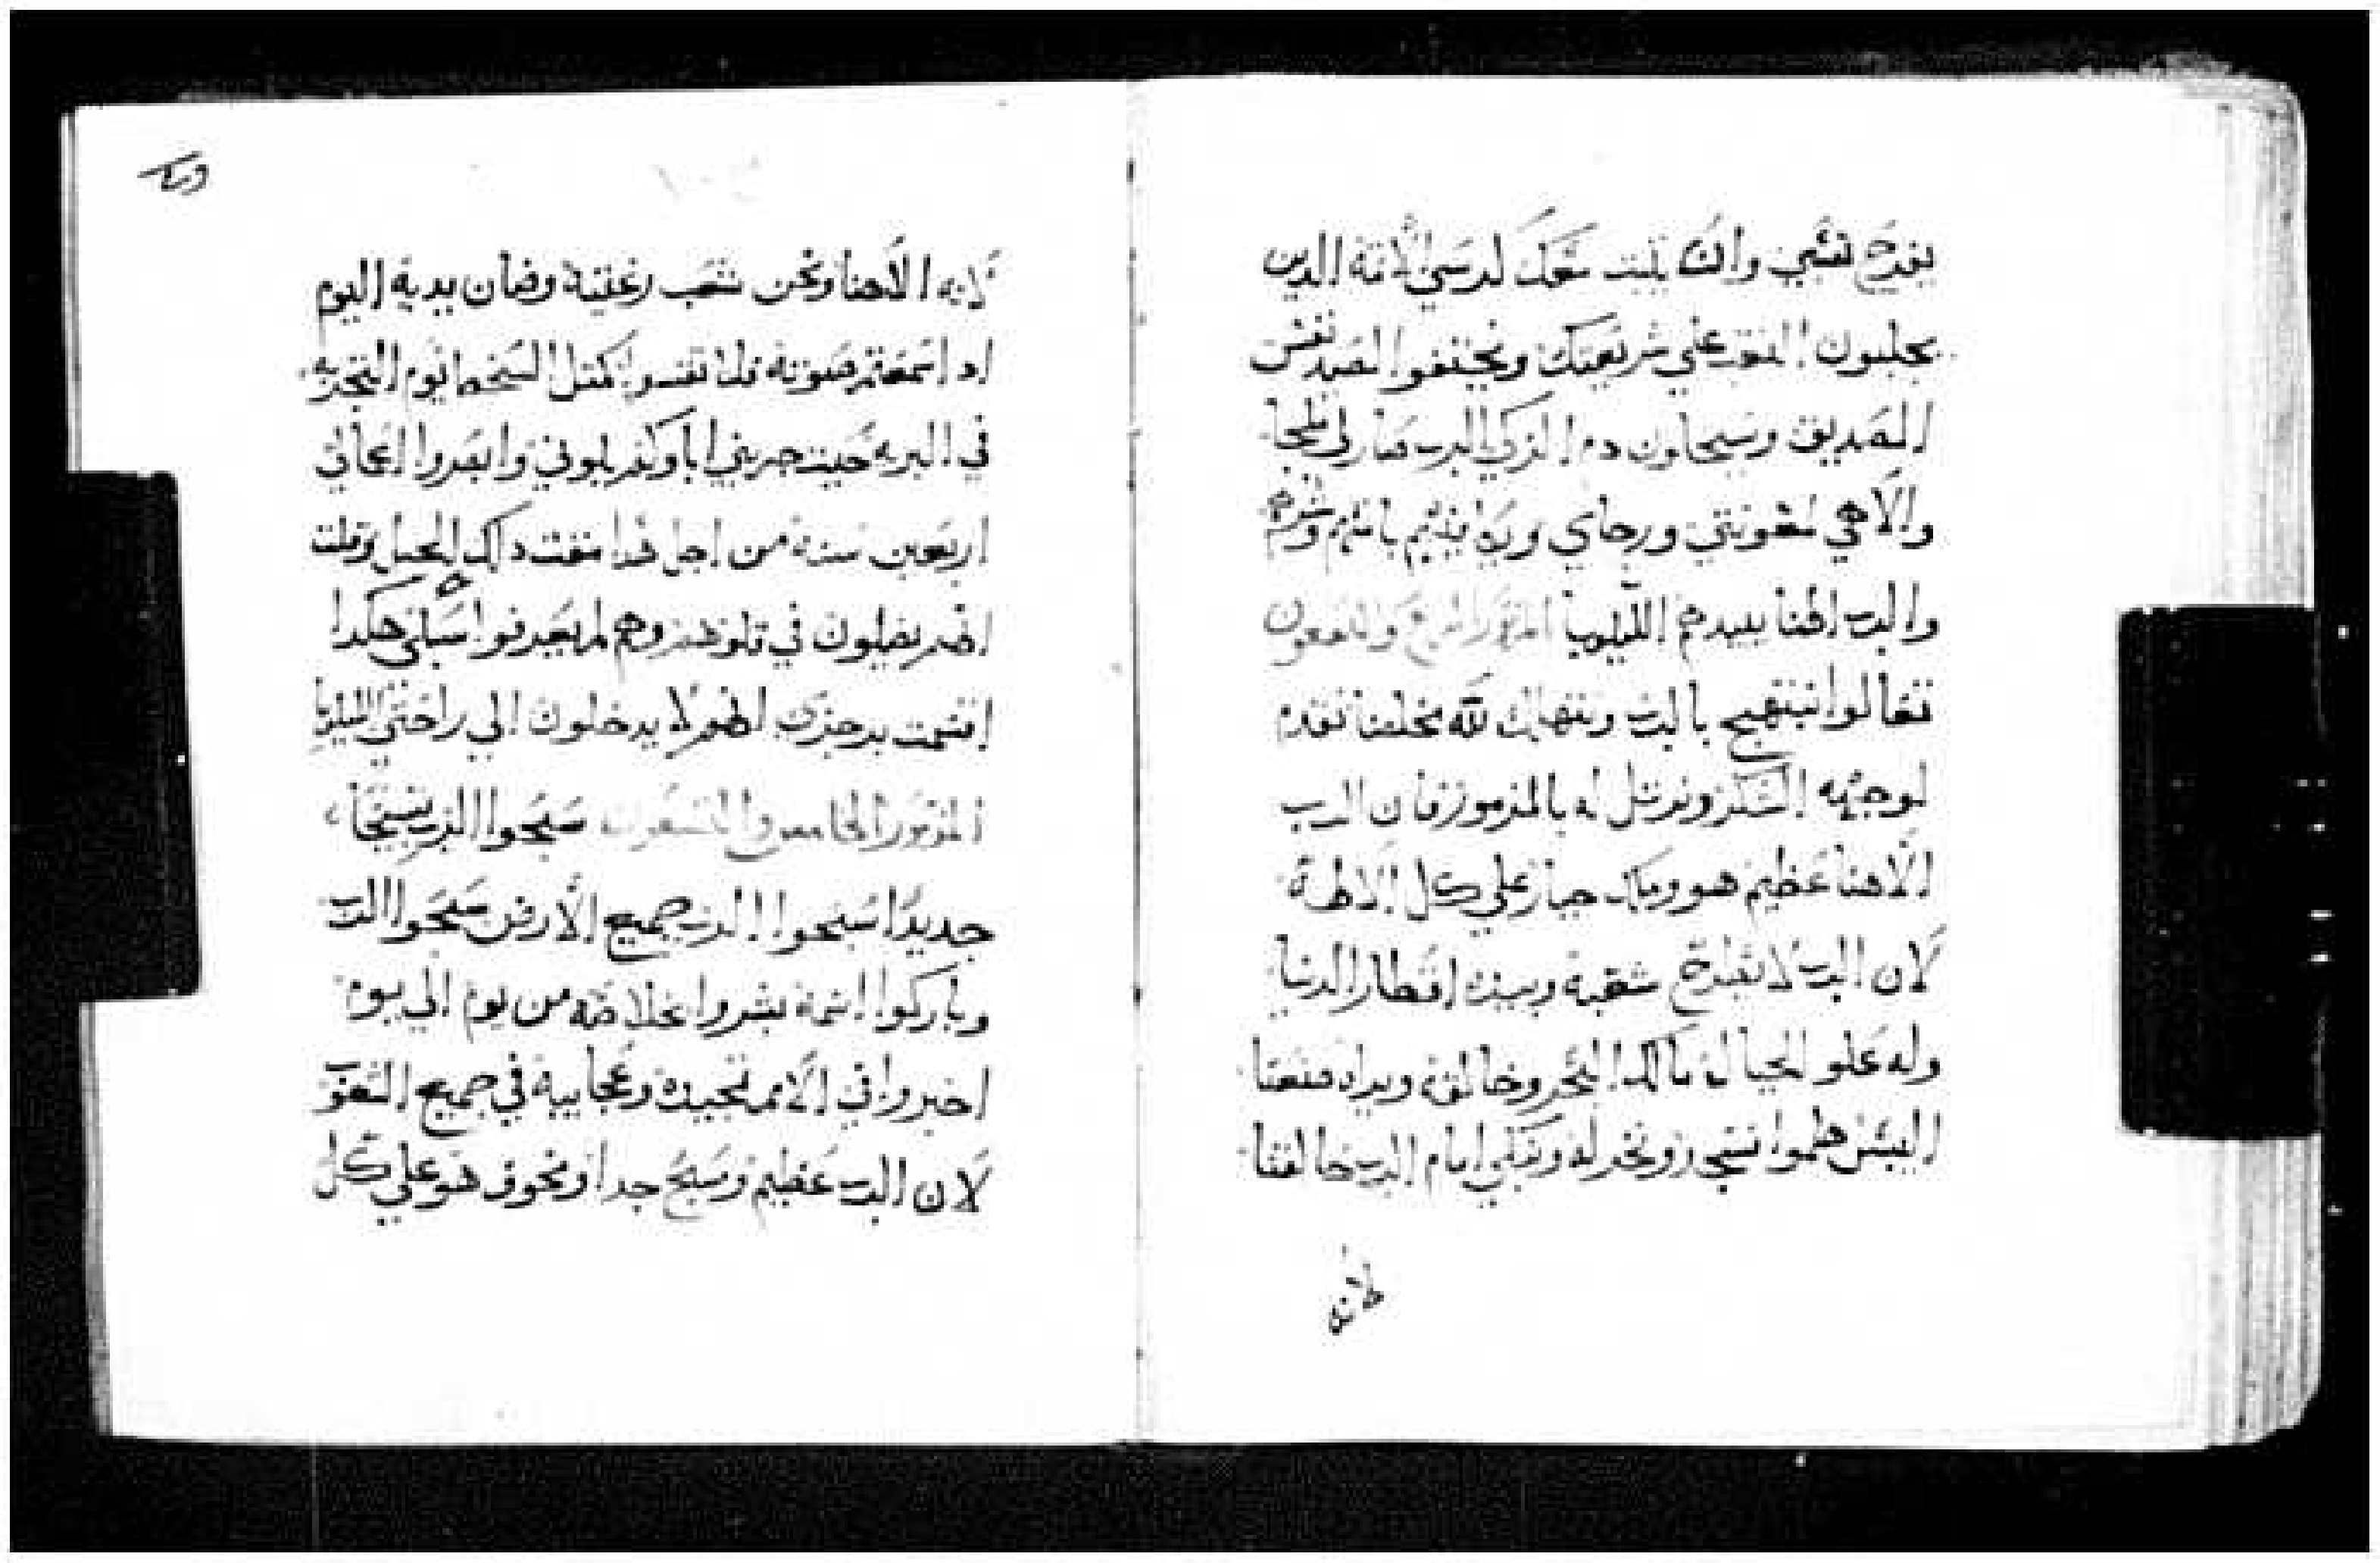 يفرح نفسي وان يلبت معك كرسي الاتمة الدين
يجلبون التعب علي شريعتك ويختنقوا لصيد نفس
الصديق وسيحاون دم الزكي الرب صار لي ملجأ
والاهي لمعونتي ورجاي وبكافيهم باتمهم وشرهم
والرب الهنا يبيدهم الليلويا المزمور الرابع والتسعون
تعالوا نبتهج بالرب ونتهلل لله مخلصنا نقدم
لوجهه الشكر ونرتل له بالمزمور فان الرب
الاهنا عظيم هو وملك جبار علي كل الالهة
لان الرب لا يطرح شعبه وبيده اقطار الدنيا
وله علو الجبال مالك البحر وخالقه ويداه صنعتا
اليبس هلموا نسجد ونخر له ونبكي امام الرب خالقنا
لانه
لانه الاهنا ونحن شعب رعيته وضان يديه اليوم
ادا سمعتم صوته فلا تقسوا كمثل السخط يوم التجربه
في البريه حيت جربني اباوكم بلوني وابصروا اعمالي
اربعين سنة من اجل هدا مقت دلك الجيل وقلت
انهم يضلون في قلوبهم وهم لم يعرفوا سبلي هكدا
اقسمت برجزي انهم لا يدخلون الي راحتي الليلويا
المزمور الخامس والتسعون سبحوا الرب تسبيحا
جديدا سبحوا الرب جميع الارض سبحوا الرب
وباركوا اسمه بشروا بخلاصه من يوم الي يوم
اخبروا في الامم بمجده وعجايبه في جميع الشعوب
لان الرب عظيم ومسبح جدا ومخوف هو علي كل